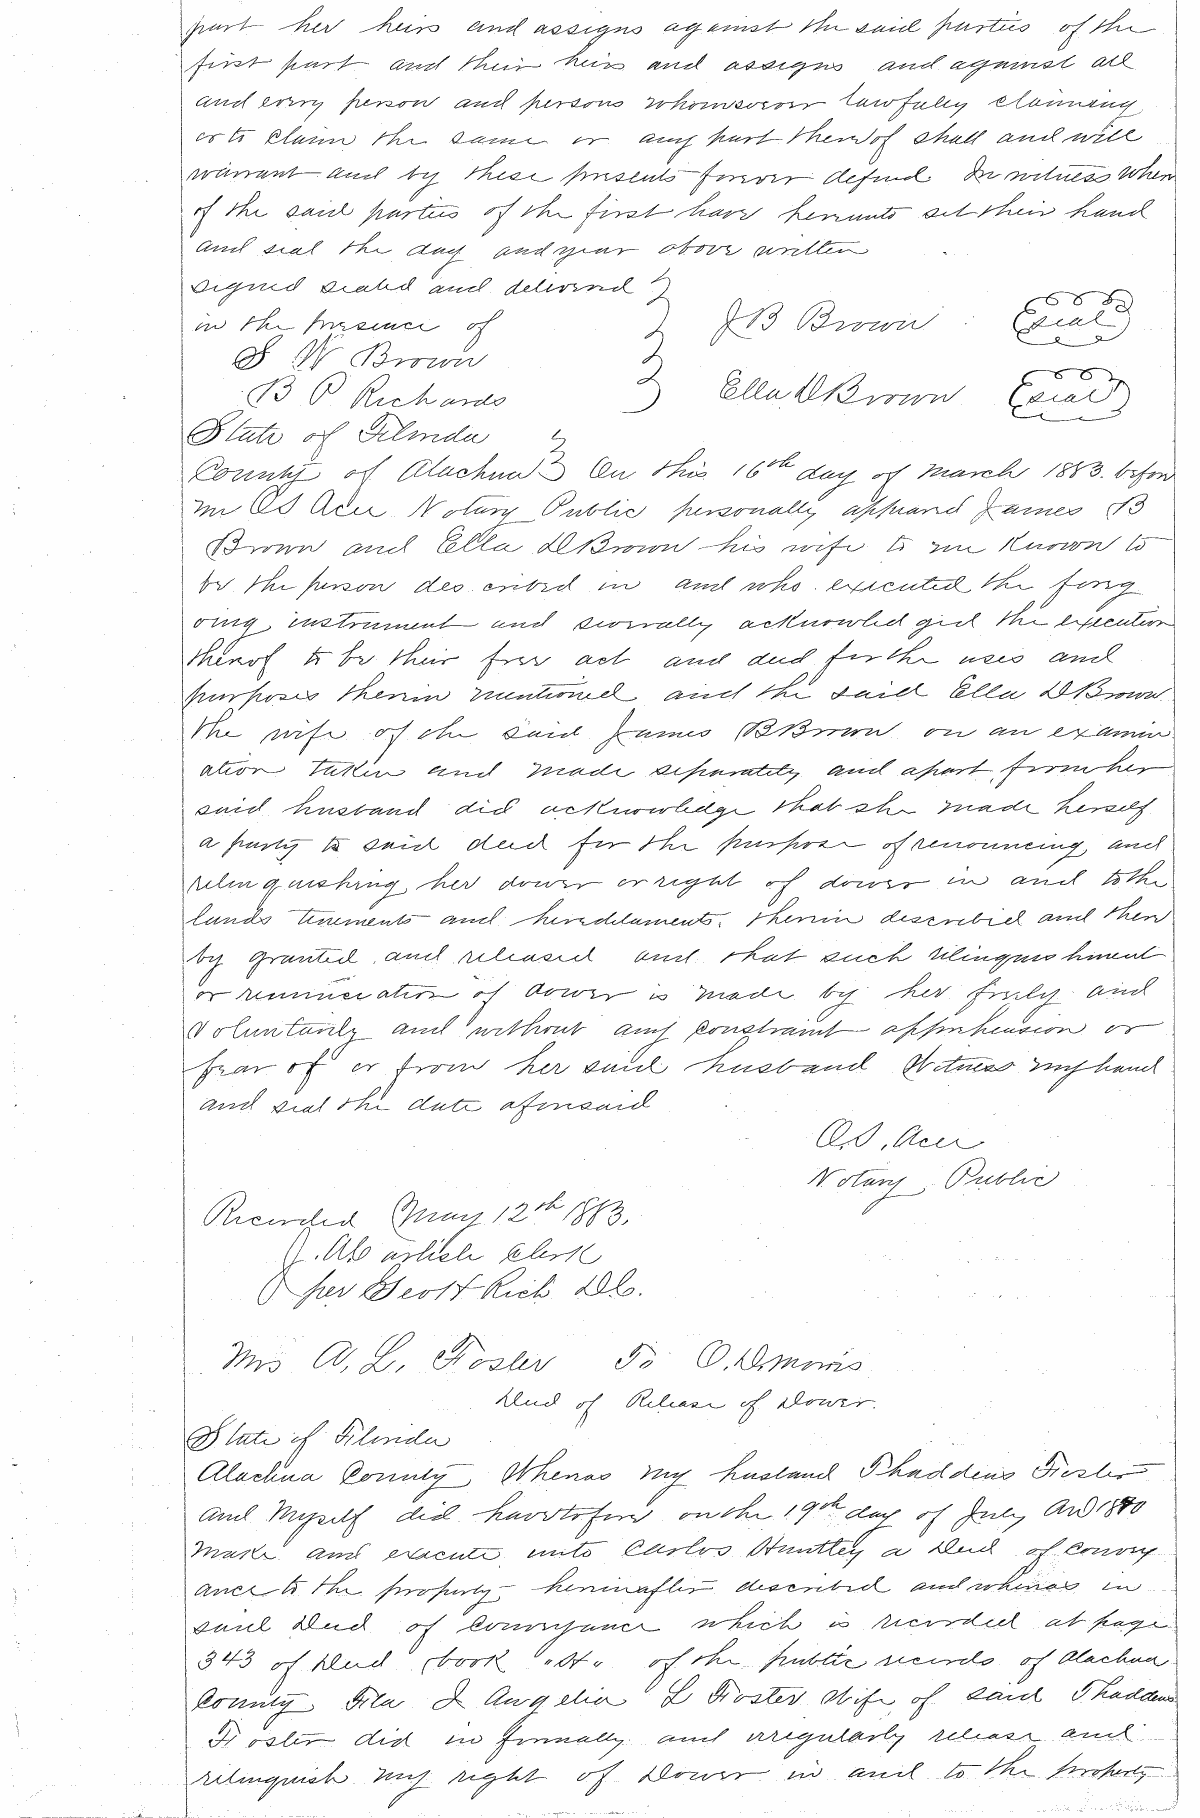 part her heirs and assigns against the said parties of the
first part and their heirs and assigns and against all
and every person and persons whomsoever lawfully claiming
or to claim the same or any part thereof shall and will
warrant and by these presents forever defend In witness wher
of the said parties of the first have hereunto set their hand
and seal the day and year above written
signed sealed and delivered
in the presence of J B Brown seal
S W Brown
B P Richards Ella D Brown seal
State of Florida
County of Alachua On this 16th day of March 1883. before
me Notary Public personally appeared James B
Brown and Ella D Brown his wife to me known to
be the person described in and who executed the foreg
oing instrument and severally acknowledged the execution
thereof to be their free act and deed for the uses and
purposes therein mentioned and the said Ella D Brown
the wife of the said James B Brown on an examin
ation taken and made separately and apart from her
said husband did acknowledge that she made herself
a party to said deed for the purpose of renouncing and
relinquishing her dower or right of dower in and to the
lands tenements and heredetaments. therein described and there
by granted and released and that such relinquishment
or renunciation of dower is made by her freely and
voluntarily and without any constraint apprehension or
fear of or from her said husband Witness my hand
and seal the date aforesaid
Notary Public
Recorded May 12th 1883.
J. A. Carlisle Clerk
per Geo H Rich D C.
Mrs A. L. Foster To O. D. Morris
Deed of Release of Dower.
State of Florida
Alachua County Whereas my husband Thaddeus Foster
and Myself did heretofore on the 19th day of July AD 1880
make and execute unto Carlos Huntley a Deed of Convey
ance to the property hereinafter described and whereas in
said Deed of Conveyance which is recorded at page
343 of Deed book of the public records of Alachua
County Fla I Angelia L Foster Wife of said Thaddeus
Foster did in formally and irregularly release and
relinquish my right of Dower in and to the property